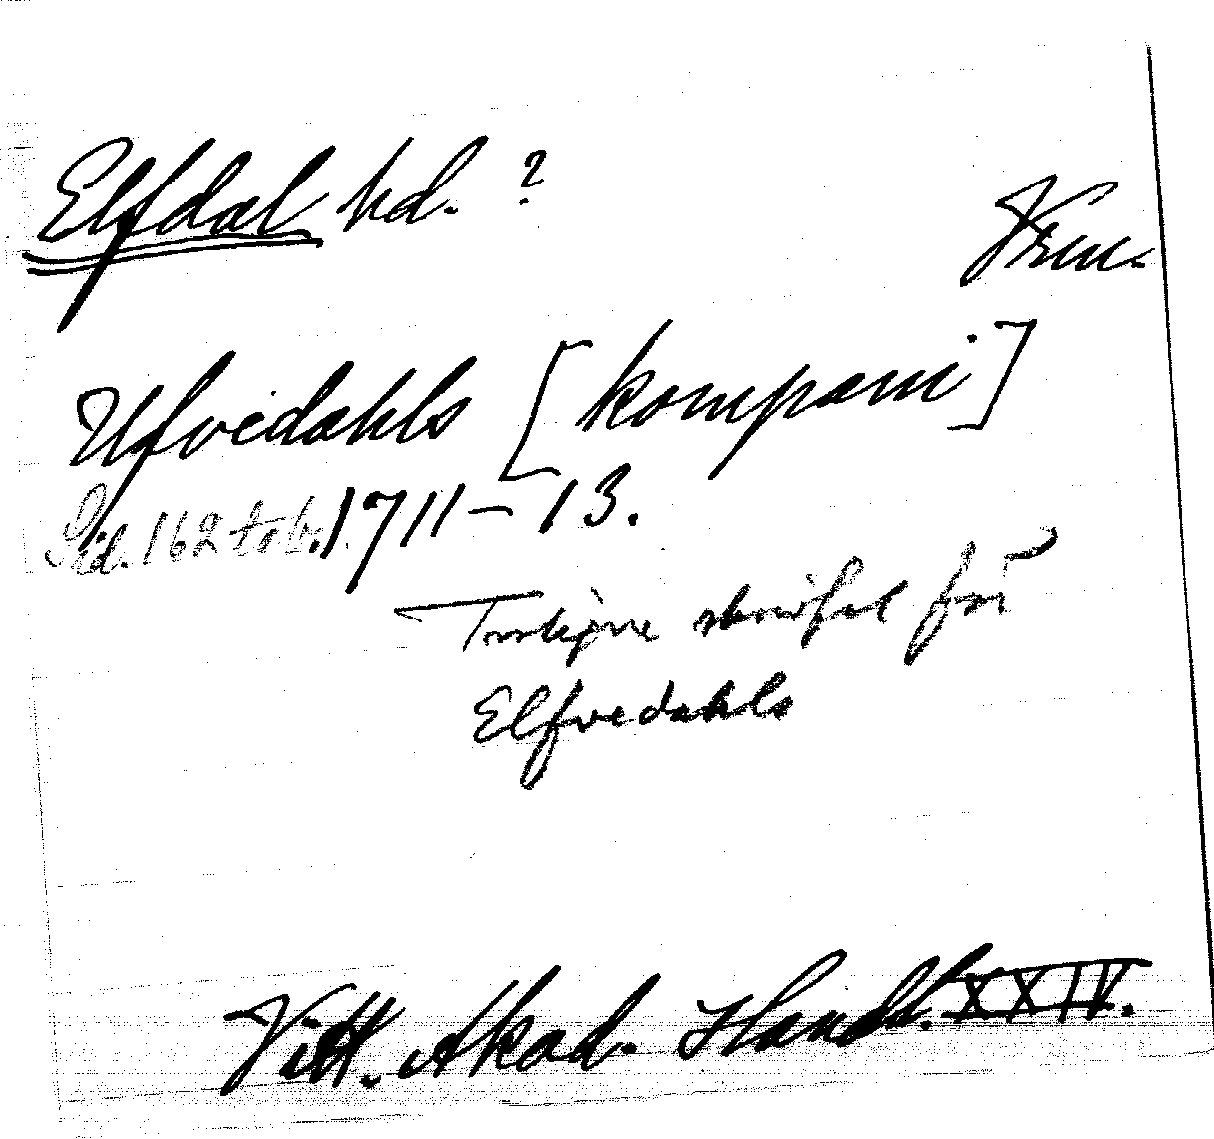 Elfdal hd. ?
Vrm.
Ufvedahls [kompani]
Sid. 162 tab. 1711–13.
Troligtvis skriffel för
Elfvedahls
Vitt. Akad. Handl. XXIV.